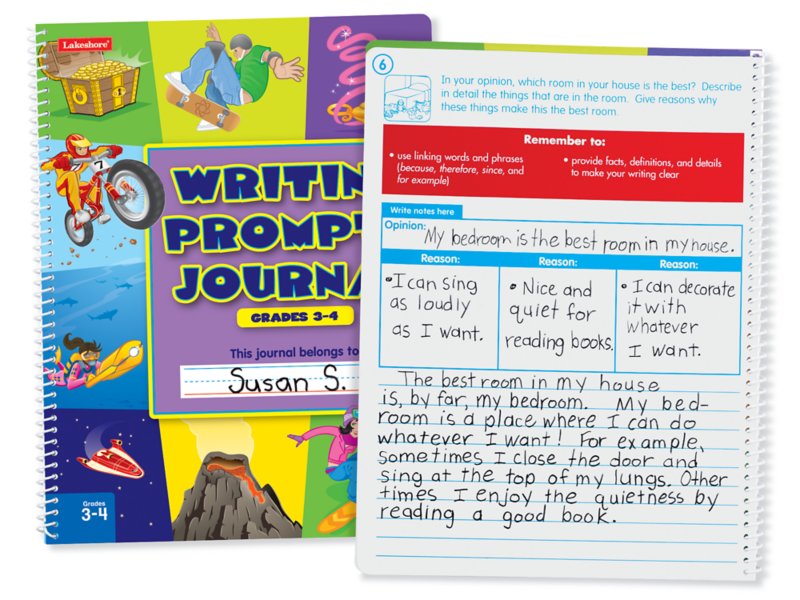 Lakeshore
WRITIN
PROMPT
JOURNA
GRADES 3-4
This journal belongs to
Susan S.
Grades
3-4
6
In your opinion, which room in your house is the best? Describe
in detail the things that are in the room. Give reasons why
these things make this the best room.
Remember to:
• use linking words and phrases
(because, therefore, since, and
for example)
• provide facts, definitions, and details
to make your writing clear
Write notes here
Opinion: My bedroom is the best room in my house.
Reason:
• I can sing
as loudly
as I want.
Reason:
• Nice and
quiet for
reading books.
Reason:
• I can decorate
it with
whatever
I want.
The best room in my house
is, by far, my bedroom. My bed-
room is a place where I can do
whatever I want! For example,
sometimes I close the door and
sing at the top of my lungs. Other
times I enjoy the quietness by
reading a good book.